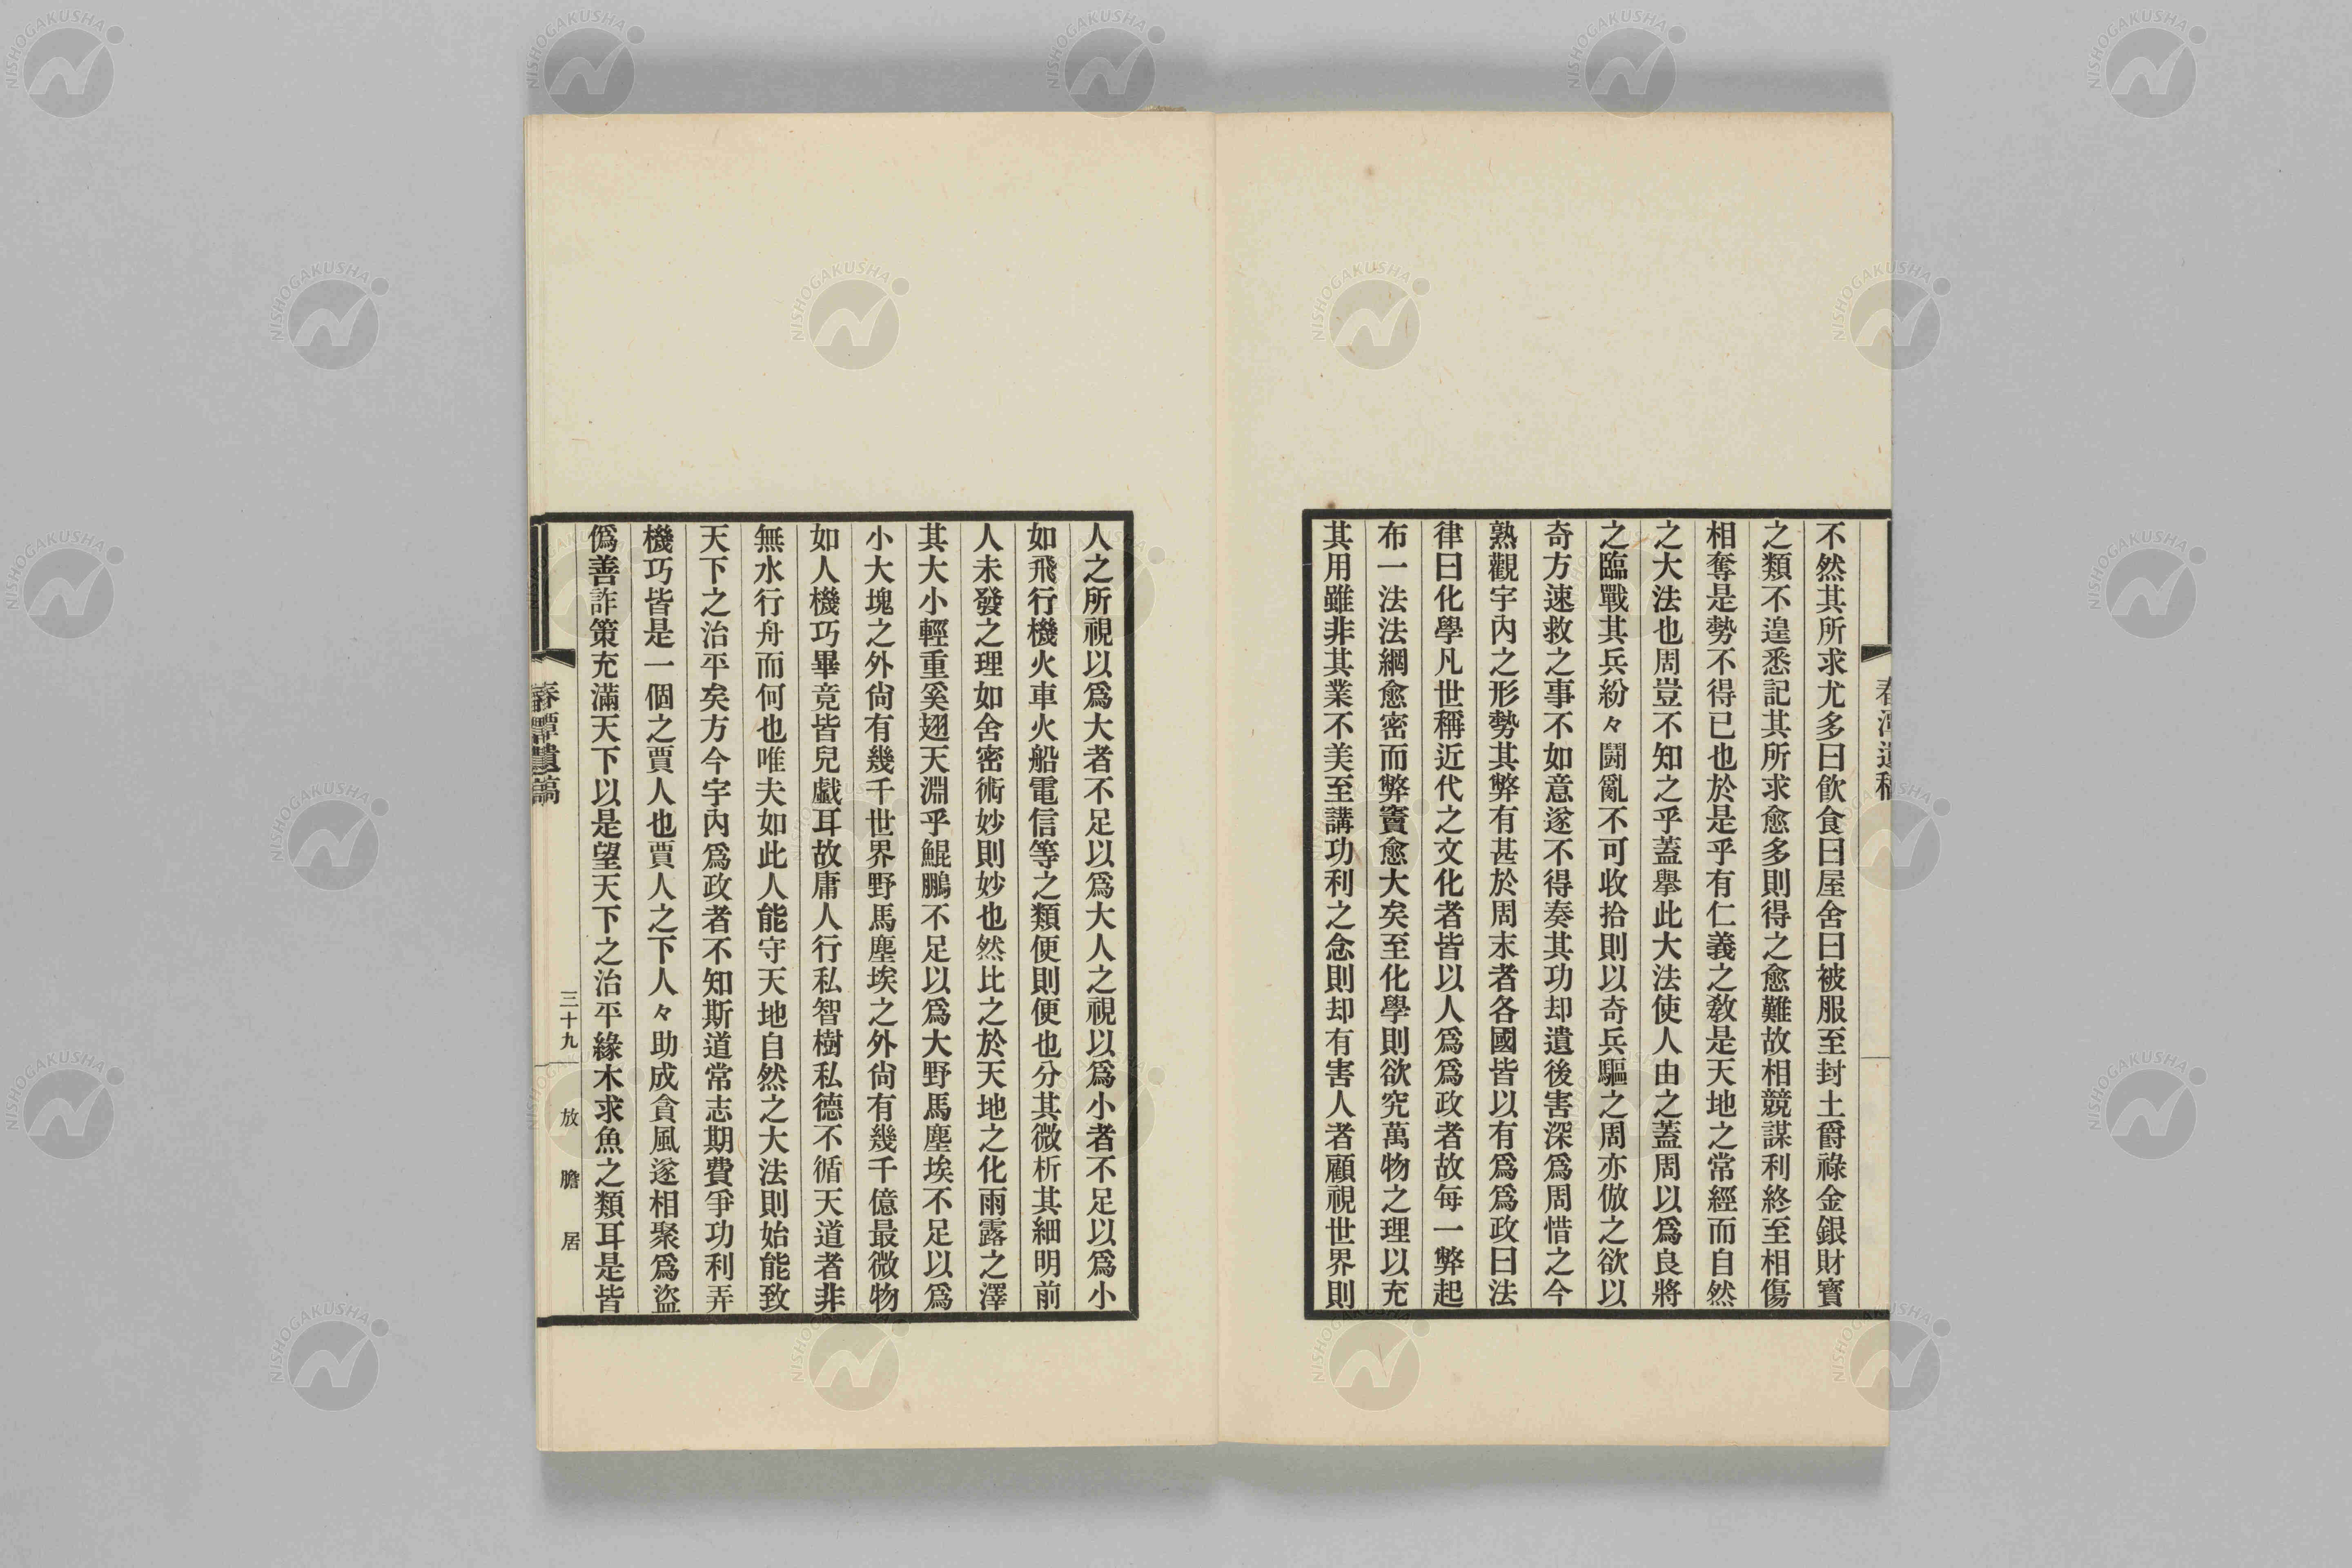 不然其所求尤多曰飮食曰屋舍曰被服至封土爵祿金銀財寳
之類不遑悉記其所求愈多則得之愈難故相競謀利終至相傷
相奪是勢不得已也於是乎有仁義之敎是天地之常經而自然
之大法也周豈不知之乎蓋擧此大法使人由之蓋周以爲良將
之臨戰其兵紛々鬪亂不可收拾則以奇兵驅之周亦倣之欲以
奇方速救之事不如意遂不得奏其功却遺後害深爲周惜之今
熟觀宇內之形勢其弊有甚於周末者各國皆以有爲爲政曰法
律曰化學凡世稱近代之文化者皆以人爲爲政者故每一弊起
布一法法網愈密而弊竇愈大矣至化學則欲究萬物之理以充
其用雖非其業不美至講功利之念則却有害人者顧視世界則
人之所視以爲大者不足以爲大人之視以爲小者不足以爲小
如飛行機火車火船電信等之類便則便也分其微析其細明前
人未發之理如舍密術妙則妙也然比之於天地之化雨露之澤
其大小輕重奚翅天淵乎鯤鵬不足以爲大野馬塵埃不足以爲
小大塊之外尙有幾千世界野馬塵埃之外尙有幾千億最微物
如人機巧畢竟皆兒戲耳故庸人行私智樹私德不循天道者非
無水行舟而何也唯夫如此人能守天地自然之大法則始能致
天下之治平矣方今宇內爲政者不知斯道常志期費爭功利弄
機巧皆是一個之賈人也賈人之下人々助成貪風遂相聚爲盜
僞善詐策充滿天下以是望天下之治平緣木求魚之類耳是皆
春潭遺稿
三十九
放膽居
春潭遺稿
NISHOGAKUSHA